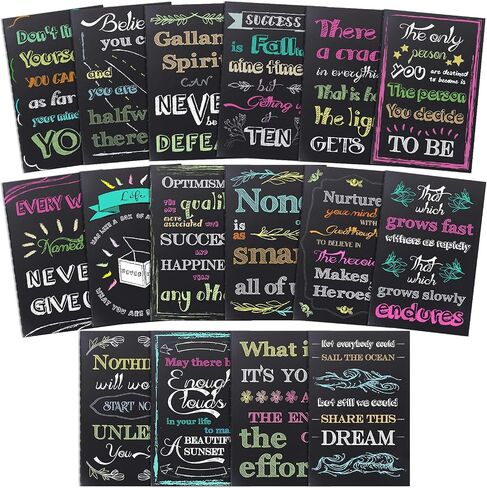 Don't li
Yourse
YOU CAN
as far
your mind
YO
Believ
you c
and
you are
halfw
there
Gallan
Spirit
CAN
NEVE
be
DEFEA
SUCCESS
is Falli
nine time
but
Getting u
is
TEN
There
a crac
in everythin
That is ho
the ligh
GETS
The only
person
YOU are destined
to become is
The person
You decide
TO BE
EVERY W
was
Named
NEVE
GIVE
Life
WAS LIKE A BOX OF
WHAT YOU ARE
OPTIMISM
the quali
more
associated with
SUCCES
AND
HAPPINE
THAN
any othe
None
is as
smar
as
all of u
Nurture
your mind
WITH
Great thought
TO BELIEVE IN
The heroic
Makes
Heroes
That
which
grows fast
withers as rapidly
That
which
grows slowly
endures
NOTHIN
will wo
START NO
UNLE
YO
May there b
Enough
Clouds
in your life
to ma
A BEAUTIFU
SUNSET
What i
IT'S YO
AND
THE EN
the
effor
Not everybody could
SAIL THE OCEAN
but still we could
SHARE THIS
DREAM